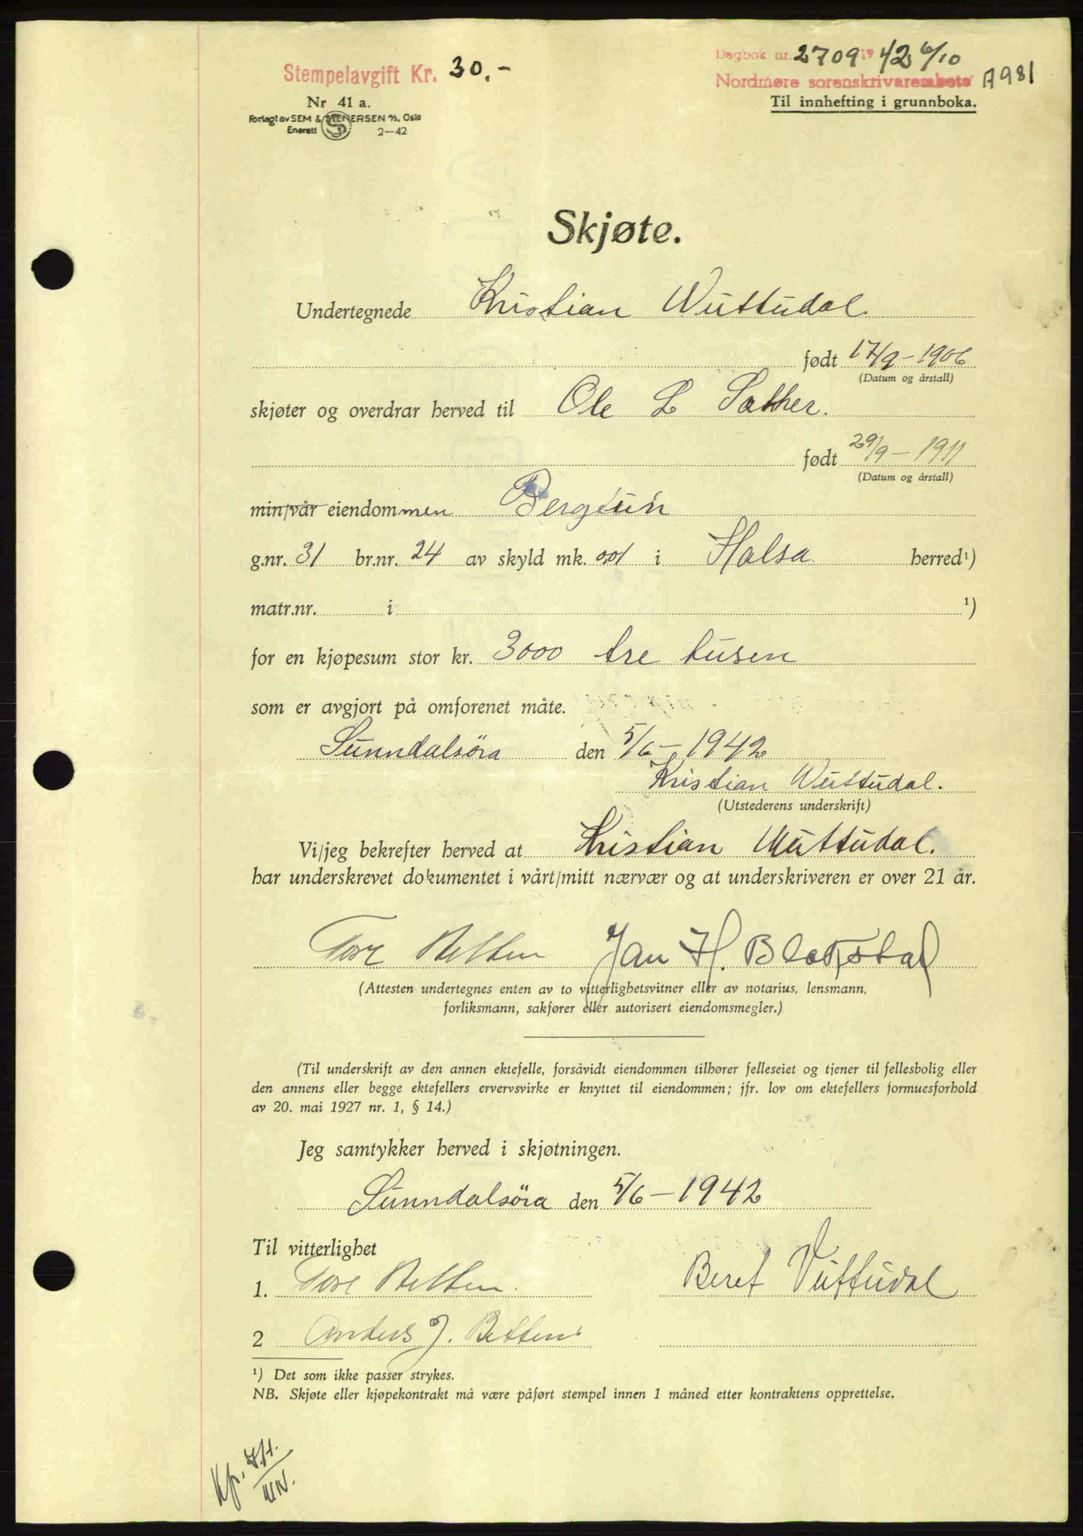 Stempelavgift Kr. 30.-
Dagbok nr. 2709 1942 6/10
Nordmøre sorenskriverembete A981
Til innhefting i grunnboka.
Nr 41 a.
Forlagt av SEM & STENERSEN A/S, Oslo
Enerett 2—42
Skjøte.
Undertegnede Kristian Wuttudal
født 17/9-1906
(Datum og årstall)
skjøter og overdrar herved til Ole L Sæther.
født 29/9-1911
(Datum og årstall)
min/vår eiendommen Bergtun
g.nr. 31 br.nr. 24 av skyld mk. 0.01 i Halsa herred¹)
matr.nr. i ¹)
for en kjøpesum stor kr. 3000 tre tusen
som er avgjort på omforenet måte.
Sunndalsöra den 5/6-1942
Kristian Wuttudal.
(Utstederens underskrift)
Vi/jeg bekrefter herved at Kristian Wuttudal.
har underskrevet dokumentet i vårt/mitt nærvær og at underskriveren er over 21 år.
Tore Betten Jan H.
(Attesten undertegnes enten av to vitterlighetsvitner eller av notarius, lensmann,
forliksmann, sakfører eller autorisert eiendomsmegler.)
(Til underskrift av den annen ektefelle, forsåvidt eiendommen tilhører felleseiet og tjener til fellesbolig eller
den annens eller begge ektefellers ervervsvirke er knyttet til eiendommen; jfr. lov om ektefellers formuesforhold
av 20. mai 1927 nr. 1, § 14.)
Jeg samtykker herved i skjøtningen.
Sunndalsöra den 5/6-1942
Til vitterlighet
1. Tore Betten. Beret Vuttudal
2 Anders J. Betten
¹) Det som ikke passer strykes.
NB. Skjøte eller kjøpekontrakt må være påført stempel innen 1 måned etter kontraktens opprettelse.